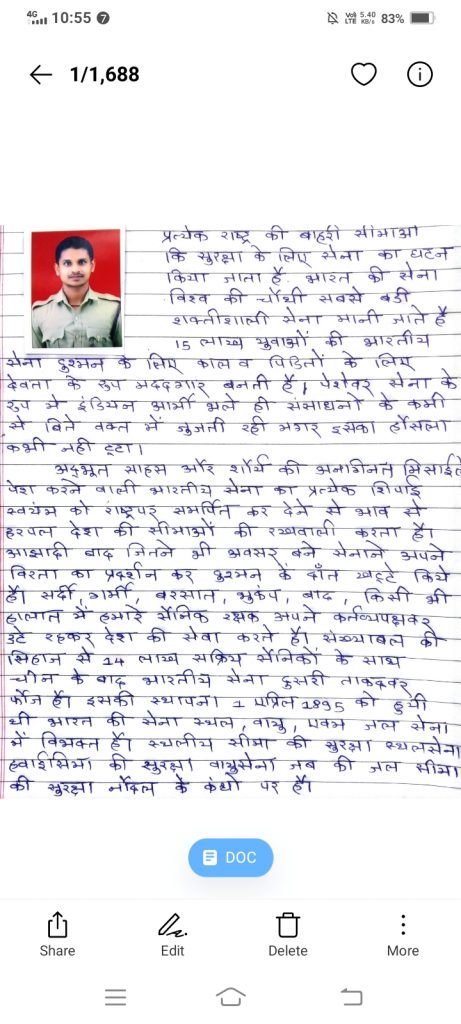 4G 10:55 7 VoD LTE 5.40 KB/s 83%
1/1,688
प्रत्येक राष्ट्र की बाहरी सीमाओ
कि सुरक्षा के लिए सेना का घटन
किया जाता है. भारत की सेना
विश्व की चौथी सबसे बडी
शक्तीशाली सेना मानी जाते है
15 लाख युवाओं की भारतीय
सेना दुश्मन के लिए काल व पिडितों के लिए
देवता के रुप मददगार बनती है, पेशेवर सेना के
रुप मे इंडियन आर्मी भले ही संसाधनो के कमी
से बिते वक्त में जुजती रही मगर इसका हौसला
कभी नही टूटा।
अदभूत साहस और शौर्य की अनगिनत मिसाईल
पेश करने वाली भारतीय सेना का प्रत्येक शिपाई
स्वयंम को राष्ट्रपर समर्पित कर देने से भाव से
हरपल देश की सीमाओं की रखवाली करता है।
आझादी बाद जितने भी अवसर बने सेनाने अपने
विरता का प्रदर्शन कर दुश्मन के दाँत खट्टे किये
है। सर्दी, गर्मी, बरसात, भुकंप, बाद, किसी भी
हालात में हमारे सैनिक रक्षक अपने कर्तव्यपक्षवर
डटे रहकर देश की सेवा करते है। संख्याबल की
लिहाज से 14 लाख सक्रिय सैनिकों के साथ
चीन के बाद भारतीय सेना दुसरी ताकदवर
फौज है। इसकी स्थापना 1 एप्रिल 1895 को हुयी
थी भारत की सेना स्थल, वायु, एवम जल सेना
में विभक्त है। स्थलीय सीमा की सुरक्षा स्थलसेना
हवाईसिमा की सुरक्षा वायुसेना जब की जल सीमा
की सुरक्षा नौदल के कंधो पर है।
DOC
Share Edit Delete More